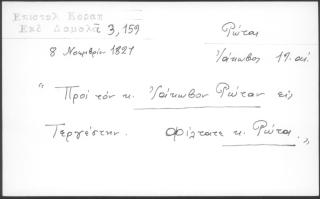 Επιστολ Κοραη
Εκδ Δαμαλᾶ 3, 159
Ρώτας
8 Νοεμβρίου 1821
Ἰάκωβος 19. αἰ.
"Πρός τόν κ. Ἰάκωβον Ρώταν εἰς
Τεργέστην. Φίλτατε κ. Ρώτα."